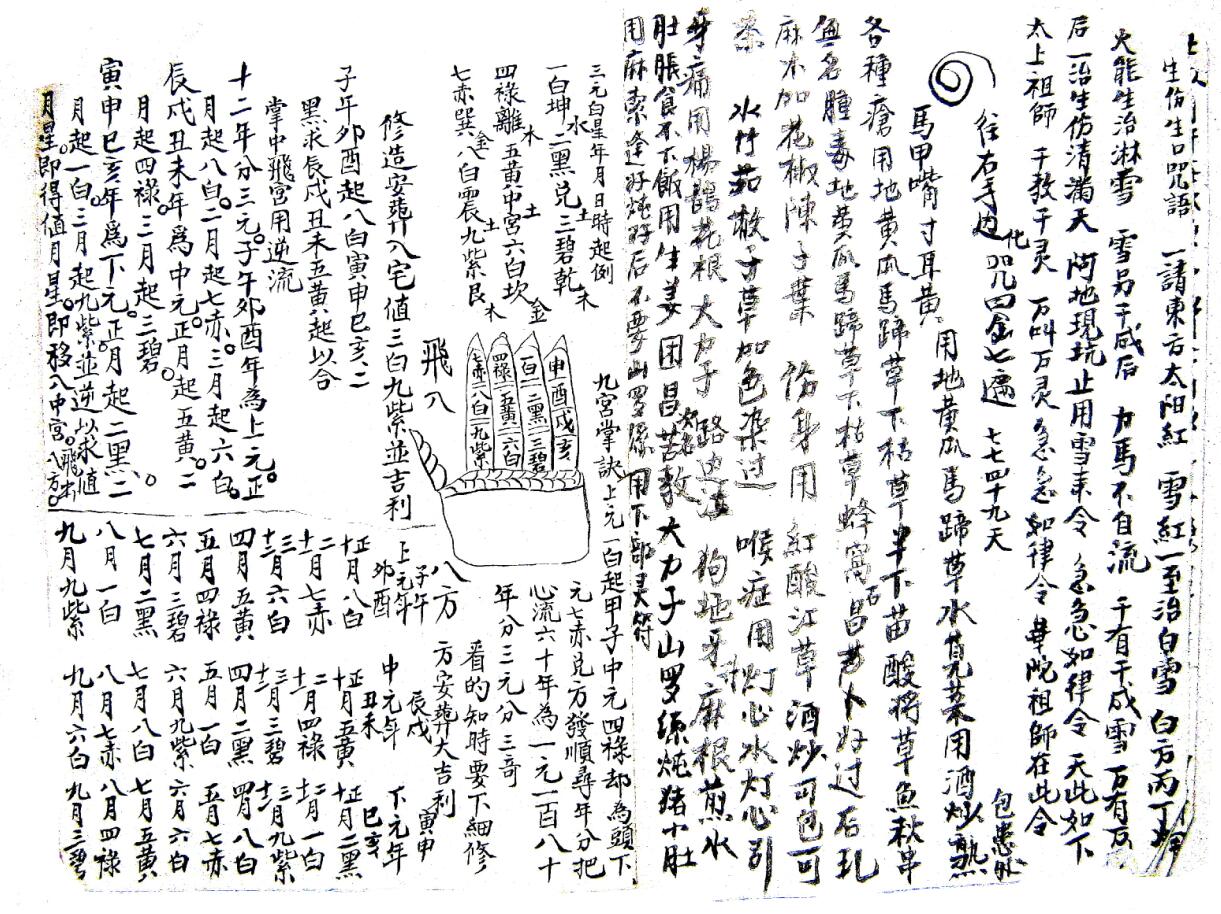 生仿生口咒語 一請東方太阳紅 雪紅一至治白雪 白方丙丁
火能生治淋雪 雪另千咸后 力馬不自流 千有千成雪 万有万
后一治生仿清滿天 阿地現坑 止用雪来令 急急如律令 天此如下
太上祖師 千教千灵 万叫万灵 急急如律令 華陀祖師在此令
往右手边化 咒四金七遍 七七四十九天
馬甲嘴寸耳黄 用地黄瓜馬蹄草水莧菜用酒炒熟 包患处
各種瘡用地黄瓜馬蹄草下枯草半下苗酸将草魚秋串
無名腫毒地黄瓜馬蹄草下枯草蜂窩石昌芦卜好过石乳
麻木加花椒陳子葉 仿身用紅酸江草酒炒可包可
茶 水竹茹 子草加色染过 喉症用灯心水灯心引
牙痛用楊鵲花根大力子 路边 狗地牙麻根煎水
肚脹食不下飯用生姜田昌苦教大力子山罗絲炖猪小肚
用麻索逢好炖好后不要山罗絲 用下部灵符
九宫掌訣上元一白起甲子中元四禄却為頭下
元七赤兑方發順尋年分把
心流六十年為一元一百八十
年分三元分三奇
看的知時要下細修
方安葬大吉利
三元白星年月日時起例
一白坤水 二黑兑土 三碧乾木
四禄離木 五黄中宫土 六白坎金
七赤巽金 八白震土 九紫艮木
申酉戌亥
一白二黑三碧
四禄五黄六白
七赤八白九紫
飛八
八方
修造安葬入宅值三白九紫並吉利
子午卯酉起八白寅申巳亥二
黑求辰戌丑未五黄起以合
掌中飛宫用逆流
十二年分三元。子午卯酉年為上元。正
月起八白。二月起七赤。三月起六白。
辰戌丑未年為中元。正月起五黄。二
月起四禄。三月起三碧。
寅申巳亥年為下元。正月起二黑。二
月起一白。三月起九紫。並逆以求值
月星。即得值月星。即移入中宫。飛求八方。
上元年
子午
卯酉
正十月八白
二十一月七赤
三十二月六白
四月五黄
五月四禄
六月三碧
七月二黑
八月一白
九月九紫
中元年
辰戌
丑未
正十月五黄
二十一月四禄
三十二月三碧
四月二黑
五月一白
六月九紫
七月八白
八月七赤
九月六白
下元年
寅申
巳亥
正十月二黑
二十一月一白
三十二月九紫
四月八白
五月七赤
六月六白
七月五黄
八月四禄
九月三碧